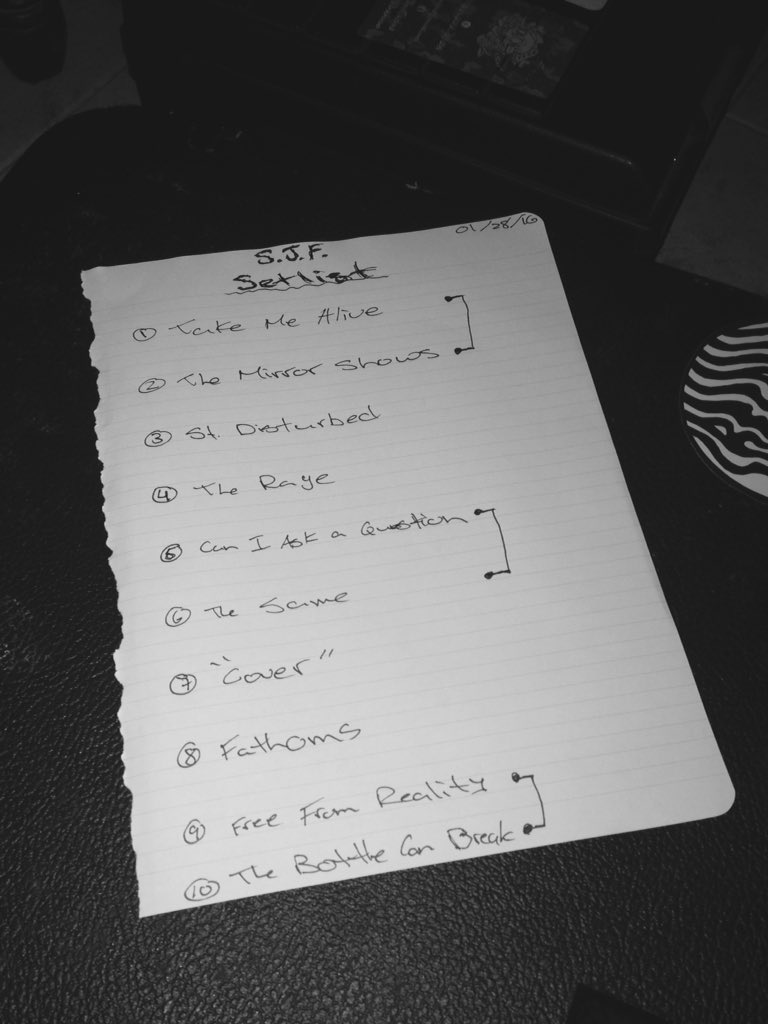 01/28/16
S.J.F.
Setlist
① Take Me Alive
② The Mirror Shows
③ St. Disturbed
④ The Rage
⑤ Can I Ask a Question
⑥ The Same
⑦ "Cover"
⑧ Fathoms
⑨ Free From Reality
⑩ The Bottle Can Break